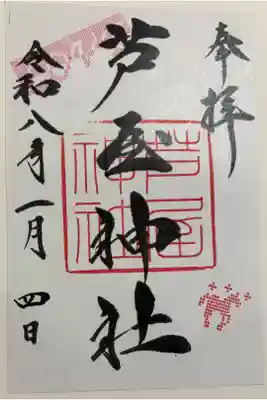 奉拝
芦屋神社
令和八年一月四日
芦屋神社